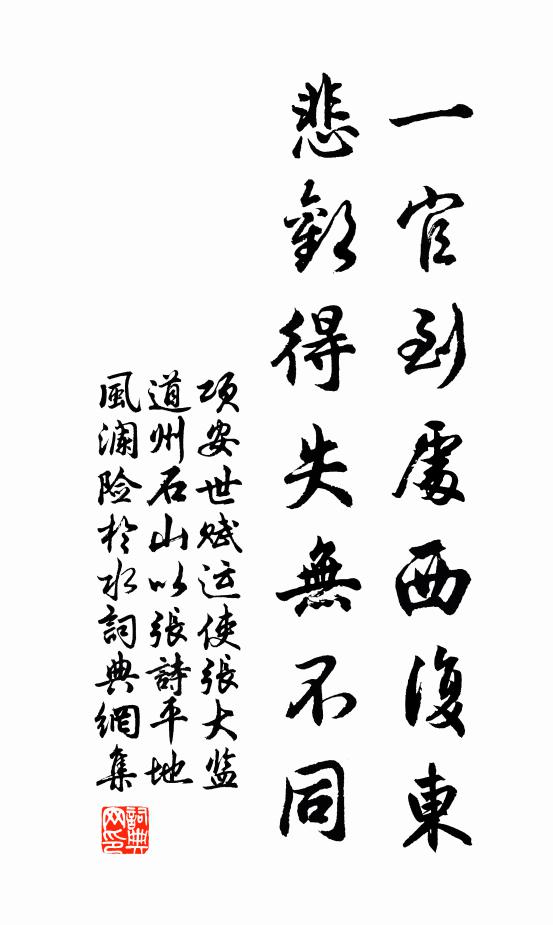 一官到處西復東
悲歡得失無不同
项安世赋运使張大监
道州石山以張詩平地
風澜险於水詞典網集
詞典网印